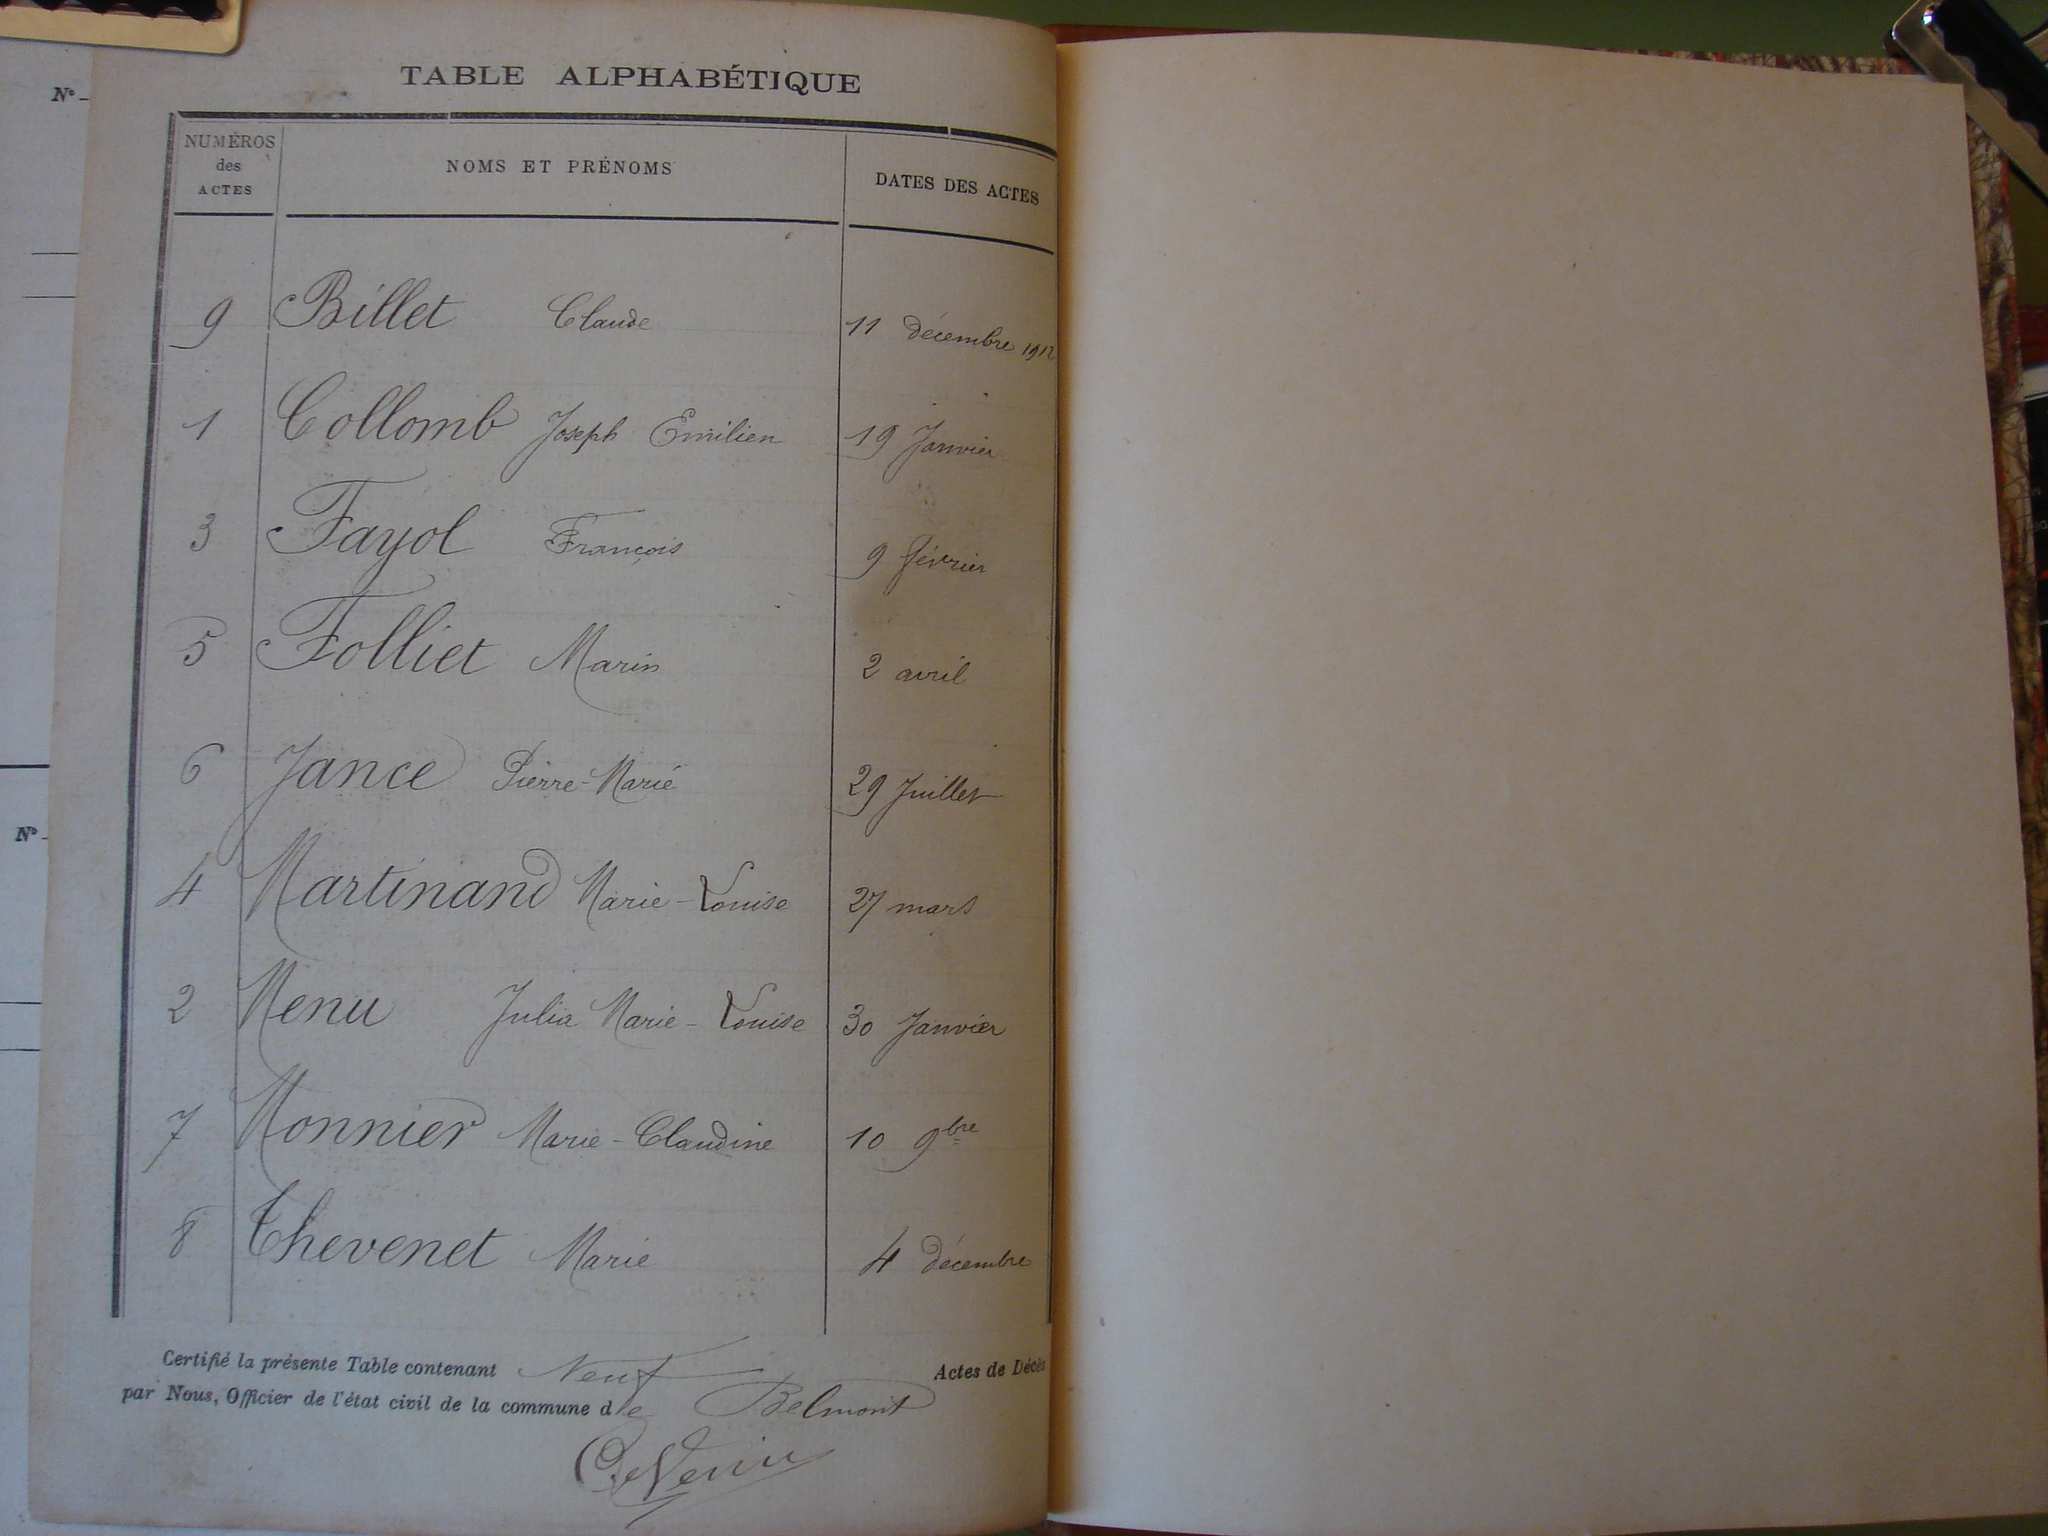 N°
TABLE ALPHABÉTIQUE
NUMÉROS des ACTES NOMS ET PRÉNOMS DATES DES ACTES
9 Billet Claude 11 décembre 1912
1 Collomb Joseph Emilien 19 Janvier
3 Fayol François 9 février
5 Folliet Marin 2 avril
6 Jance Pierre-Marie 29 Juillet
N°
4 Martinand Marie-Louise 27 mars
2 Menu Julia Marie-Louise 30 Janvier
7 Monnier Marie-Claudine 10 9bre
8 Thevenet Marie 4 décembre
Certifié la présente Table contenant Neuf Actes de Décès
par Nous, Officier de l'état civil de la commune de Belmont